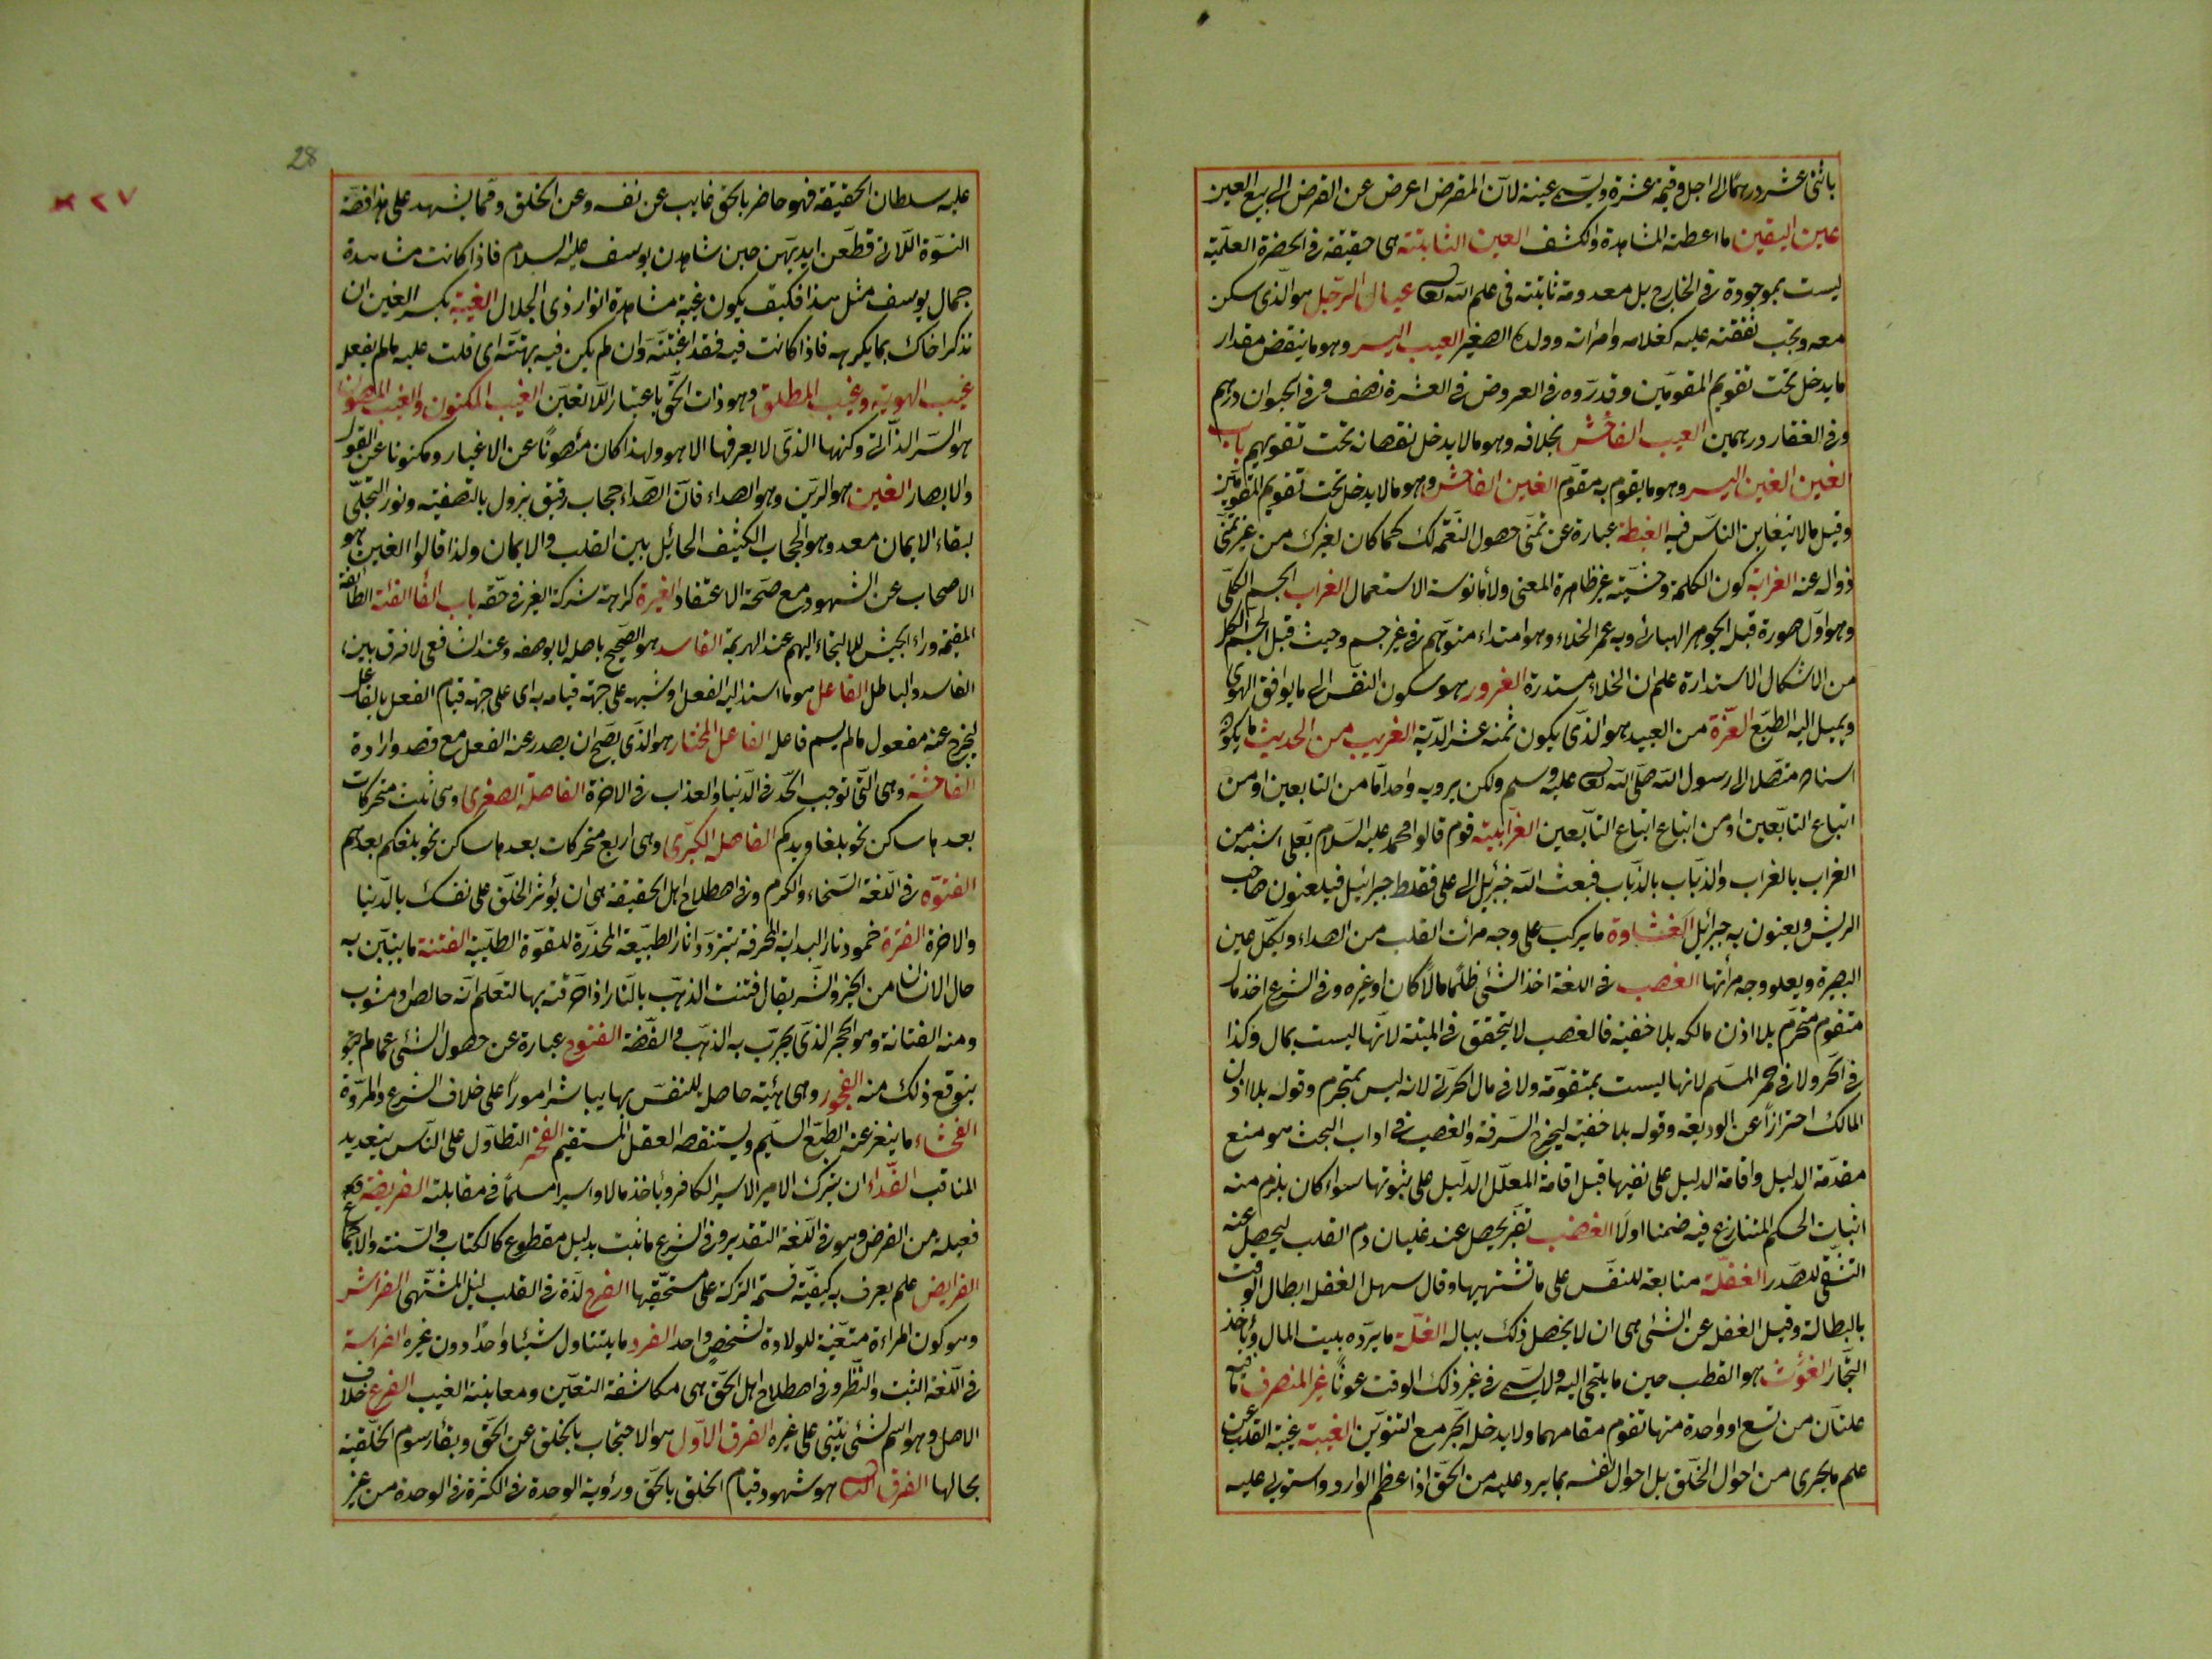 باثنى عشر درهما الى اجل وقيمته عشرة ويسمى عينة لان المقرض اعرض عن القرض الى بيع العين
عين اليقين ما اعطته المشاهدة والكشف العين الثابتة هى حقيقة فى الحضرة العلمية
ليست بموجودة فى الخارج بل معدومة ثابتة فى علم الله تعالى عيال الرجل هو الذى سكن
معه وتجب نفقته عليه كغلامه وامرأته وولده الصغير العيب اليسير وهو ما ينقض مقدار
ما يدخل تحت تقويم المقومين وقدروه فى العروض فى العشرة نصف وفى الحيوان درهم
وفى العقار درهمين العيب الفاحش بخلافه وهو ما لا يدخل نقصانه تحت تقويمهم باب
الغين الغبن اليسير وهو ما يقوم به مقوم الغبن الفاحش وهو ما لا يدخل تحت تقويم المقومين
وقيل ما لا يتغابن الناس فيه الغبطة عبارة عن تمنى حصول النعمة لك كما كان لغيرك من غير تمنى
زواله عنه الغرابة كون الكلمة وحشية غير ظاهرة المعنى ولا مأنوسة الاستعمال الغراب الجسم الكلى
وهو اول صورة قبل الجوهر الهبائى وبه عمر الخلاء وهو امتداء متوهم فى غير جسم وحيث قبل الجسم الكل
من الاشكال الاستدارة علم ان الخلاء مستدرة الغرور هو سكون النفس الى ما يوافق الهوى
ويميل اليه الطبع الغرة من العبيد هو الذى يكون ثمنه عشر الدية الغريب من الحديث ما يكون
اسناده متصلا الى رسول الله صلى الله تعالى عليه وسلم ولكن يرويه واحد اما من التابعين او من
اتباع التابعين او من اتباع اتباع التابعين الغرابية قوم قالوا محمد عليه السلام بعلى اشبه من
الغراب بالغراب والذباب بالذباب فبعث الله جبرئيل الى على فغلط جبرائيل فيلعنون صاحب
الريش ويعنون به جبرائيل الغشاوة ما يركب على وجه مرأت القلب من الصداء ويكل عين
البصيرة ويعلو وجه مرأتها الغصب فى اللغة اخذ الشئ ظلما مالا كان او غيره وفى الشرع اخذ مال
متقوم محترم بلا اذن مالكه بلا خفية فالغصب لا يتحقق فى الميتة لانها ليست بمال وكذا
فى الحر ولا فى خمر المسلم لانها ليست بمتقومة ولا فى مال الحربى لانه ليس بمحترم وقوله بلا اذن
المالك احترازا عن الوديعة وقوله بلا خفية ليخرج السرقة والغصب فى اداب البحث هو منع
مقدمة الدليل واقامة الدليل على نفيها قبل اقامة المعلل الدليل على ثبوتها سواء كان يلزم منه
اثبات الحكم المتنازع فيه ضمنا اولا الغضب تغير يحصل عند غليان دم القلب ليحصل عنه
التشفى للصدر الغفلة متابعة للنفس على ما تشتهيها وقال سهل الغفل ابطال الوقت
بالبطالة وقيل الغفل عن الشئ هى ان لا يخطر ذلك بباله الغلة ما يرده بيت المال ويأخذ
التجار الغوث هو القطب حين ما يلتجى اليه ولا يسمى فى غير ذلك الوقت غوثا غير المنصرف ما فيه
علتان من تسع او واحدة منها تقوم مقامهما ولا يدخله الجر مع التنوين الغيبة غيبة القلب عن
علم ما يجرى من احوال الخلق بل احوال نفسه بما يرد عليه من الحق اذا عظم الوارد واستولى عليه
28
٣٢٧
عليه سلطان الحقيقة فهو حاضر بالحق غايب عن نفسه وعن الخلق ومما يشهد على هذا قصة
النسوة اللاتى قطعن ايديهن حين شاهدن يوسف عليه السلام فاذا كانت مشاهدة
جمال يوسف مثل هذا فكيف يكون غيبة مشاهدة انوار ذى الجلال الغيبة بكسر الغين ان
تذكر اخاك بما يكرهه فاذا كانت فيه فقد اغتبته وان لم يكن فيه بهتته اى قلت عليه ما لم يفعل
غيب الهوية وغيب المطلق وهو ذات الحق باعتبار اللاتعين الغيب المكنون والغيب المصون
هو السر الذاتى وكنهها الذى لا يعرفها الا هو ولهذا كان مصونا عن الاغيار ومكنونا عن العقول
والابصار الغين هو الرين وهو الصداء فان الصداء حجاب رقيق يزول بالتصفية ونور التجلى
لبقاء الايمان معه وهو الحجاب الكثيف الحائل بين القلب والايمان ولذا قالوا الغين هو
الاحتجاب عن الشهود مع صحة الاعتقاد الغيرة كراهة شركة الغير فى حقه باب الفا الفئة الطائفة
المقيمة وراء الجيش للالتجاء اليهم عند الهزيمة الفاسد هو الصحيح باصله لا بوصفه وعند الشافعى لا فرق بين
الفاسد والباطل الفاعل هو ما اسند اليه الفعل او شبهه على جهة قيامه به اى على جهة قيام الفعل بالفاعل
ليخرج عنه مفعول ما لم يسم فاعله الفاعل المختار هو الذى يصح ان يصدر عنه الفعل مع قصد وارادة
الفاحشة وهى التى توجب الحد فى الدنيا والعذاب فى الاخرة الفاصلة الصغرى وهى ثلث متحركات
بعدها ساكن نحو بلغا ويدكم الفاصلة الكبرى وهى اربع متحركات بعدها ساكن نحو بلغكم يعدهم
الفتوة فى اللغة السخاء والكرم وفى اصطلاح اهل الحقيقة هى ان يؤثر الخلق على نفسك بالدنيا
والاخرة الفترة خمود نار البداية المحرقة بتردد اثار الطبيعة المخدرة للقوة الطلبية الفتنة ما يتبين به
حال الانسان من الخير والشر يقال فتنت الذهب بالنار اذا احرقته بها لتعلم انه خالص او مشوب
ومنه الفتانة وهو الحجر الذى يجرب به الذهب والفضة الفتوح عبارة عن حصول الشئ عما لم
يتوقع ذلك منه الفجور وهى هيئة حاصلة للنفس بها يباشر امورا على خلاف الشرع والمروة
الفحشاء ما ينفر عنه الطبع السليم ويستنقصه العقل المستقيم الفخر التطاول على الناس بتعديد
المناقب الفداء ان يترك الامير الاسير الكافر ويأخذ مالا او اسيرا مسلما فى مقابلته الفريضة
فعيلة من الفرض وهو فى اللغة التقدير وفى الشرع ما ثبت بدليل مقطوع كالكتاب والسنة والاجماع
الفرايض علم يعرف به كيفية قسمة التركة على مستحقيها الفرح لذة فى القلب لنيل المشتهى الفراش
وهو كون المراءة متعينة للولادة لشخص واحد الفرد ما يتناول شيئا واحدا دون غيره الفراسة
فى اللغة التثبت والنظر وفى اصطلاح اهل الحق هى مكاشفة التعين ومعاينة الغيب الفرع خلاف
الاصل وهو اسم لشئ يبتنى على غيره الفرق الاول هو الاحتجاب بالخلق عن الحق وبقاء رسوم الخلقية
بحالها الفرق الثانى هو شهود قيام الخلق بالحق ورؤية الوحدة فى الكثرة فى الوحدة من غير